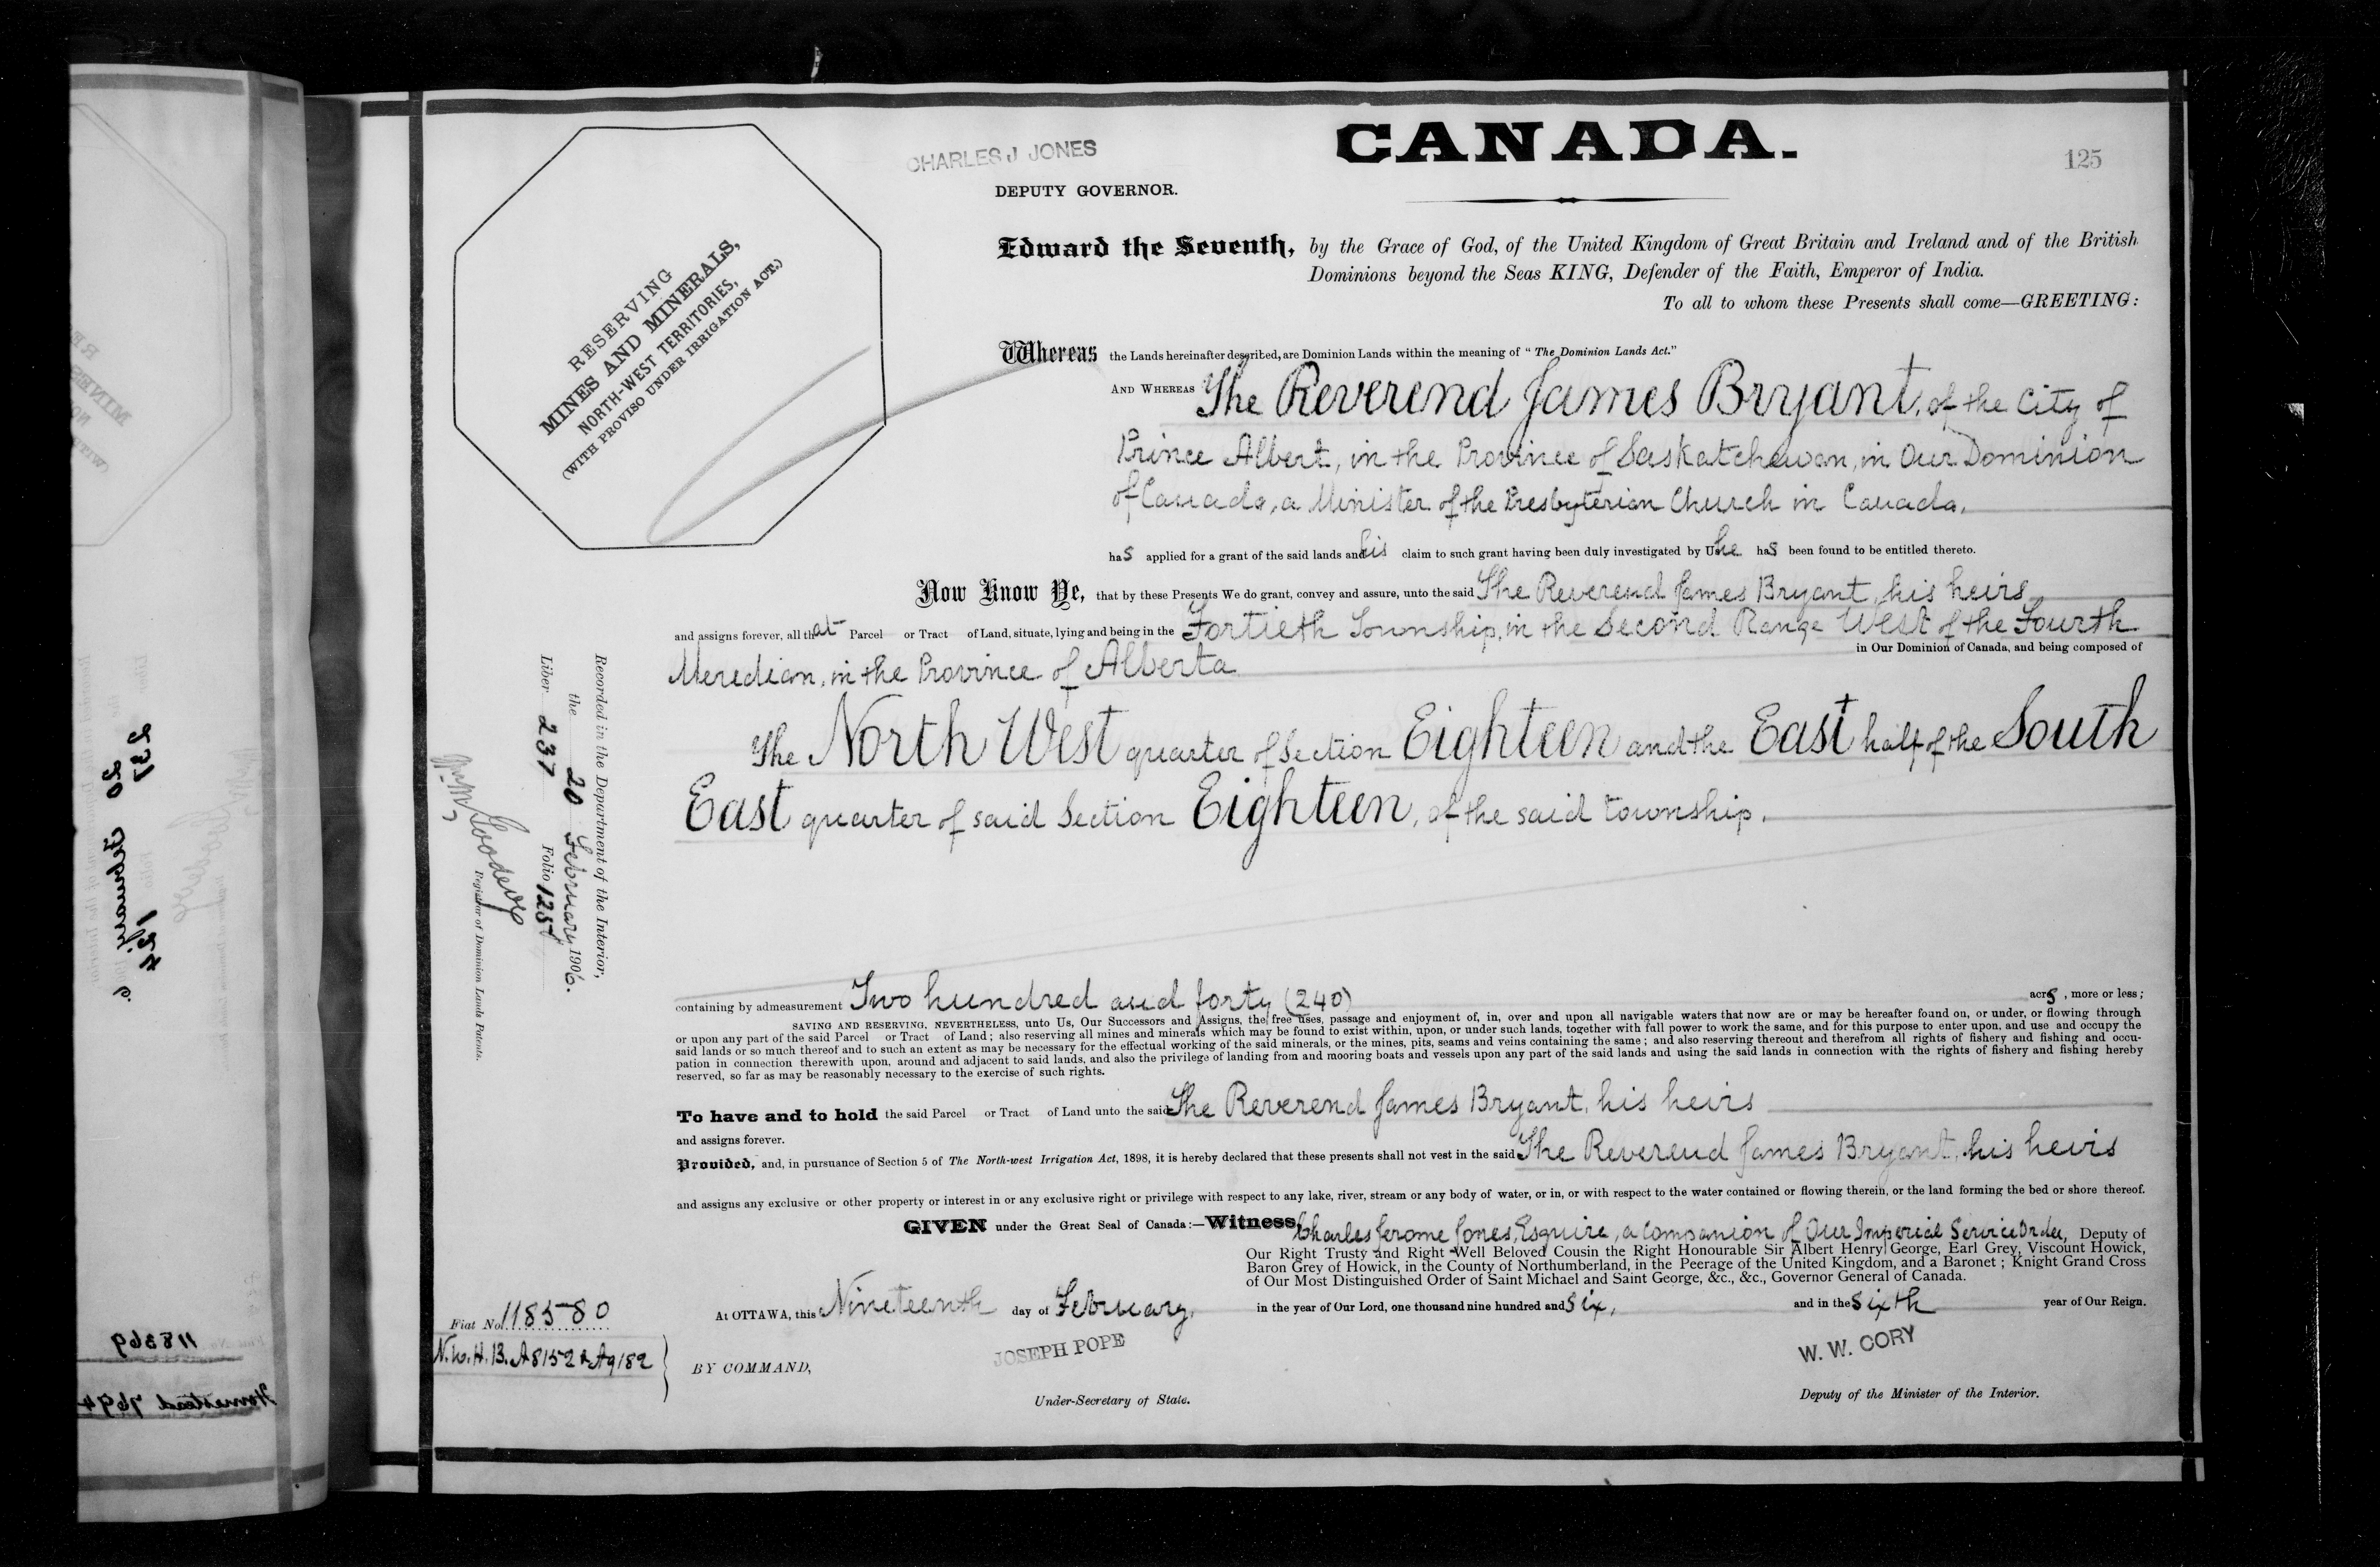 CANADA.
125
CHARLES J JONES
DEPUTY GOVERNOR.
RESERVING
MINES AND MINERALS,
NORTH-WEST TERRITORIES,
(WITH PROVISO UNDER IRRIGATION ACT.)
Edward the Seventh, by the Grace of God, of the United Kingdom of Great Britain and Ireland and of the British
Dominions beyond the Seas KING, Defender of the Faith, Emperor of India.
To all to whom these Presents shall come—GREETING:
Whereas the Lands hereinafter described, are Dominion Lands within the meaning of "The Dominion Lands Act."
AND WHEREAS The Reverend James Bryant, of the City of
Prince Albert, in the Province of Saskatchewan, in Our Dominion
of Canada, a Minister of the Presbyterian Church in Canada,
has applied for a grant of the said lands and his claim to such grant having been duly investigated by Us he has been found to be entitled thereto.
Now Know Ye, that by these Presents We do grant, convey and assure, unto the said The Reverend James Bryant, his heirs
and assigns forever, all that Parcel or Tract of Land, situate, lying and being in the Fortieth Township, in the Second Range West of the Fourth
Meredian, in the Province of Alberta in Our Dominion of Canada, and being composed of
The North West quarter of Section Eighteen and the East half of the South
East quarter of said Section Eighteen, of the said township.
containing by admeasurement Two hundred and forty (240) acres, more or less;
SAVING AND RESERVING, NEVERTHELESS, unto Us, Our Successors and Assigns, the free uses, passage and enjoyment of, in, over and upon all navigable waters that now are or may be hereafter found on, or under, or flowing through
or upon any part of the said Parcel or Tract of Land; also reserving all mines and minerals which may be found to exist within, upon, or under such lands, together with full power to work the same, and for this purpose to enter upon, and use and occupy the
said lands or so much thereof and to such an extent as may be necessary for the effectual working of the said minerals, or the mines, pits, seams and veins containing the same; and also reserving thereout and therefrom all rights of fishery and fishing and occu-
pation in connection therewith upon, around and adjacent to said lands, and also the privilege of landing from and mooring boats and vessels upon any part of the said lands and using the said lands in connection with the rights of fishery and fishing hereby
reserved, so far as may be reasonably necessary to the exercise of such rights.
To have and to hold the said Parcel or Tract of Land unto the said The Reverend James Bryant, his heirs
and assigns forever.
Provided, and, in pursuance of Section 5 of The North-west Irrigation Act, 1898, it is hereby declared that these presents shall not vest in the said The Reverend James Bryant, his heirs
and assigns any exclusive or other property or interest in or any exclusive right or privilege with respect to any lake, river, stream or any body of water, or in, or with respect to the water contained or flowing therein, or the land forming the bed or shore thereof.
GIVEN under the Great Seal of Canada:—Witness Charles Jerome Jones, Esquire, a Companion of Our Imperial Service Order, Deputy of
Our Right Trusty and Right Well Beloved Cousin the Right Honourable Sir Albert Henry George, Earl Grey, Viscount Howick,
Baron Grey of Howick, in the County of Northumberland, in the Peerage of the United Kingdom, and a Baronet; Knight Grand Cross
of Our Most Distinguished Order of Saint Michael and Saint George, &c., &c., Governor General of Canada.
At OTTAWA, this Nineteenth day of February, in the year of Our Lord, one thousand nine hundred and six, and in the sixth year of Our Reign.
Fiat No. 118580
N.W.H.B. A8152 & A9182
BY COMMAND,
JOSEPH POPE
Under-Secretary of State.
W. W. CORY
Deputy of the Minister of the Interior.
Recorded in the Department of the Interior,
the 20 February 1906.
Liber 237 Folio 125
Wm M Goodeve
Registrar of Dominion Lands Patents.
237
20 February
118369
Homestead 7694